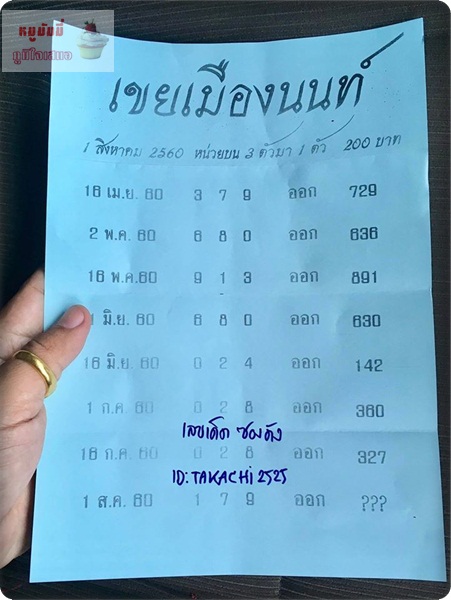 หมูมัมมี่
ภูมิใจเสนอ
เขยเมืองนนท์
1 สิงหาคม 2560 หน่วยบน 3 ตัวมา 1 ตัว 200 บาท
16 เม.ย. 60 3 7 9 ออก 729
2 พ.ค. 60 6 8 0 ออก 636
16 พ.ค.60 9 1 3 ออก 891
1 มิ.ย. 60 6 8 0 ออก 630
16 มิ.ย. 60 0 2 4 ออก 142
1 ก.ค 60 0 2 8 ออก 360
เลขเด็ด ซองดัง
16 ก.ค. 60 0 2 8 ออก 327
ID: TAKACHI 2525
1 ส.ค. 60 1 7 9 ออก ???